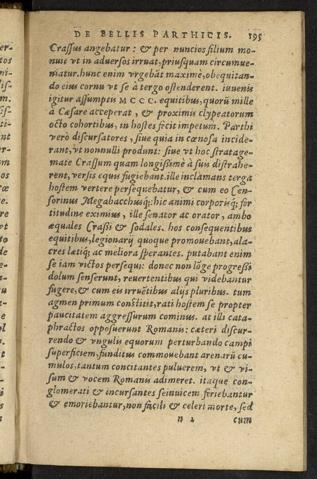 DE BELLIS PARTHICIS. 195
Crassus angebatur : & per nuncios filium mo-
nuit vt in aduersos irruat, priusquam circumue-
niatur. hunc enim vrgebāt maximè, obequitan-
do eius cornu vt se à tergo ostenderent. iuuenis
igitur assumptis MCCC. equitibus, quorū mille
à Cæsare acceperat, & proximis clypeatorum
octo cohortibus, in hostes facit impetum. Parthi
verò discursatores, siue quia in cœnosa incide-
rant, vt nonnulli produnt: siue vt hoc stratage-
mate Crassum quam longissimè à suis distrahe-
rent, versis equis fugiebant. ille inclamans terga
hostem vertere persequebatur, & cum eo Cen-
sorinus Megabacchusq́;: hic animi corporisq́; for
titudine eximius, ille senator ac orator, ambo
æquales Crassi & sodales. hos consequentibus
equitibus, legionarij quoque promouebant, ala-
cres lætiq́; ac meliora sperantes. putabant enim
se iam victos persequi: donec non lōge progressi
dolum senserunt, reuertentibus qui videbantur
fugere, & cum eis irruētibus alijs pluribus. tum
agmen primum constitit, rati hostem se propter
paucitatem aggressurum cominus. at illi cata-
phractos opposuerunt Romanis: cæteri discur-
rendo & vngulis equorum perturbando campi
superficiem, funditus commouebant arenarū cu-
mulos, tantum concitantes puluerem, vt & vi-
sum & vocem Romanis adimeret. itaque con-
glomerati & incursantes seinuicem feriebantur
& emoriebantur, non facili & celeri morte, sed
n 2 cum